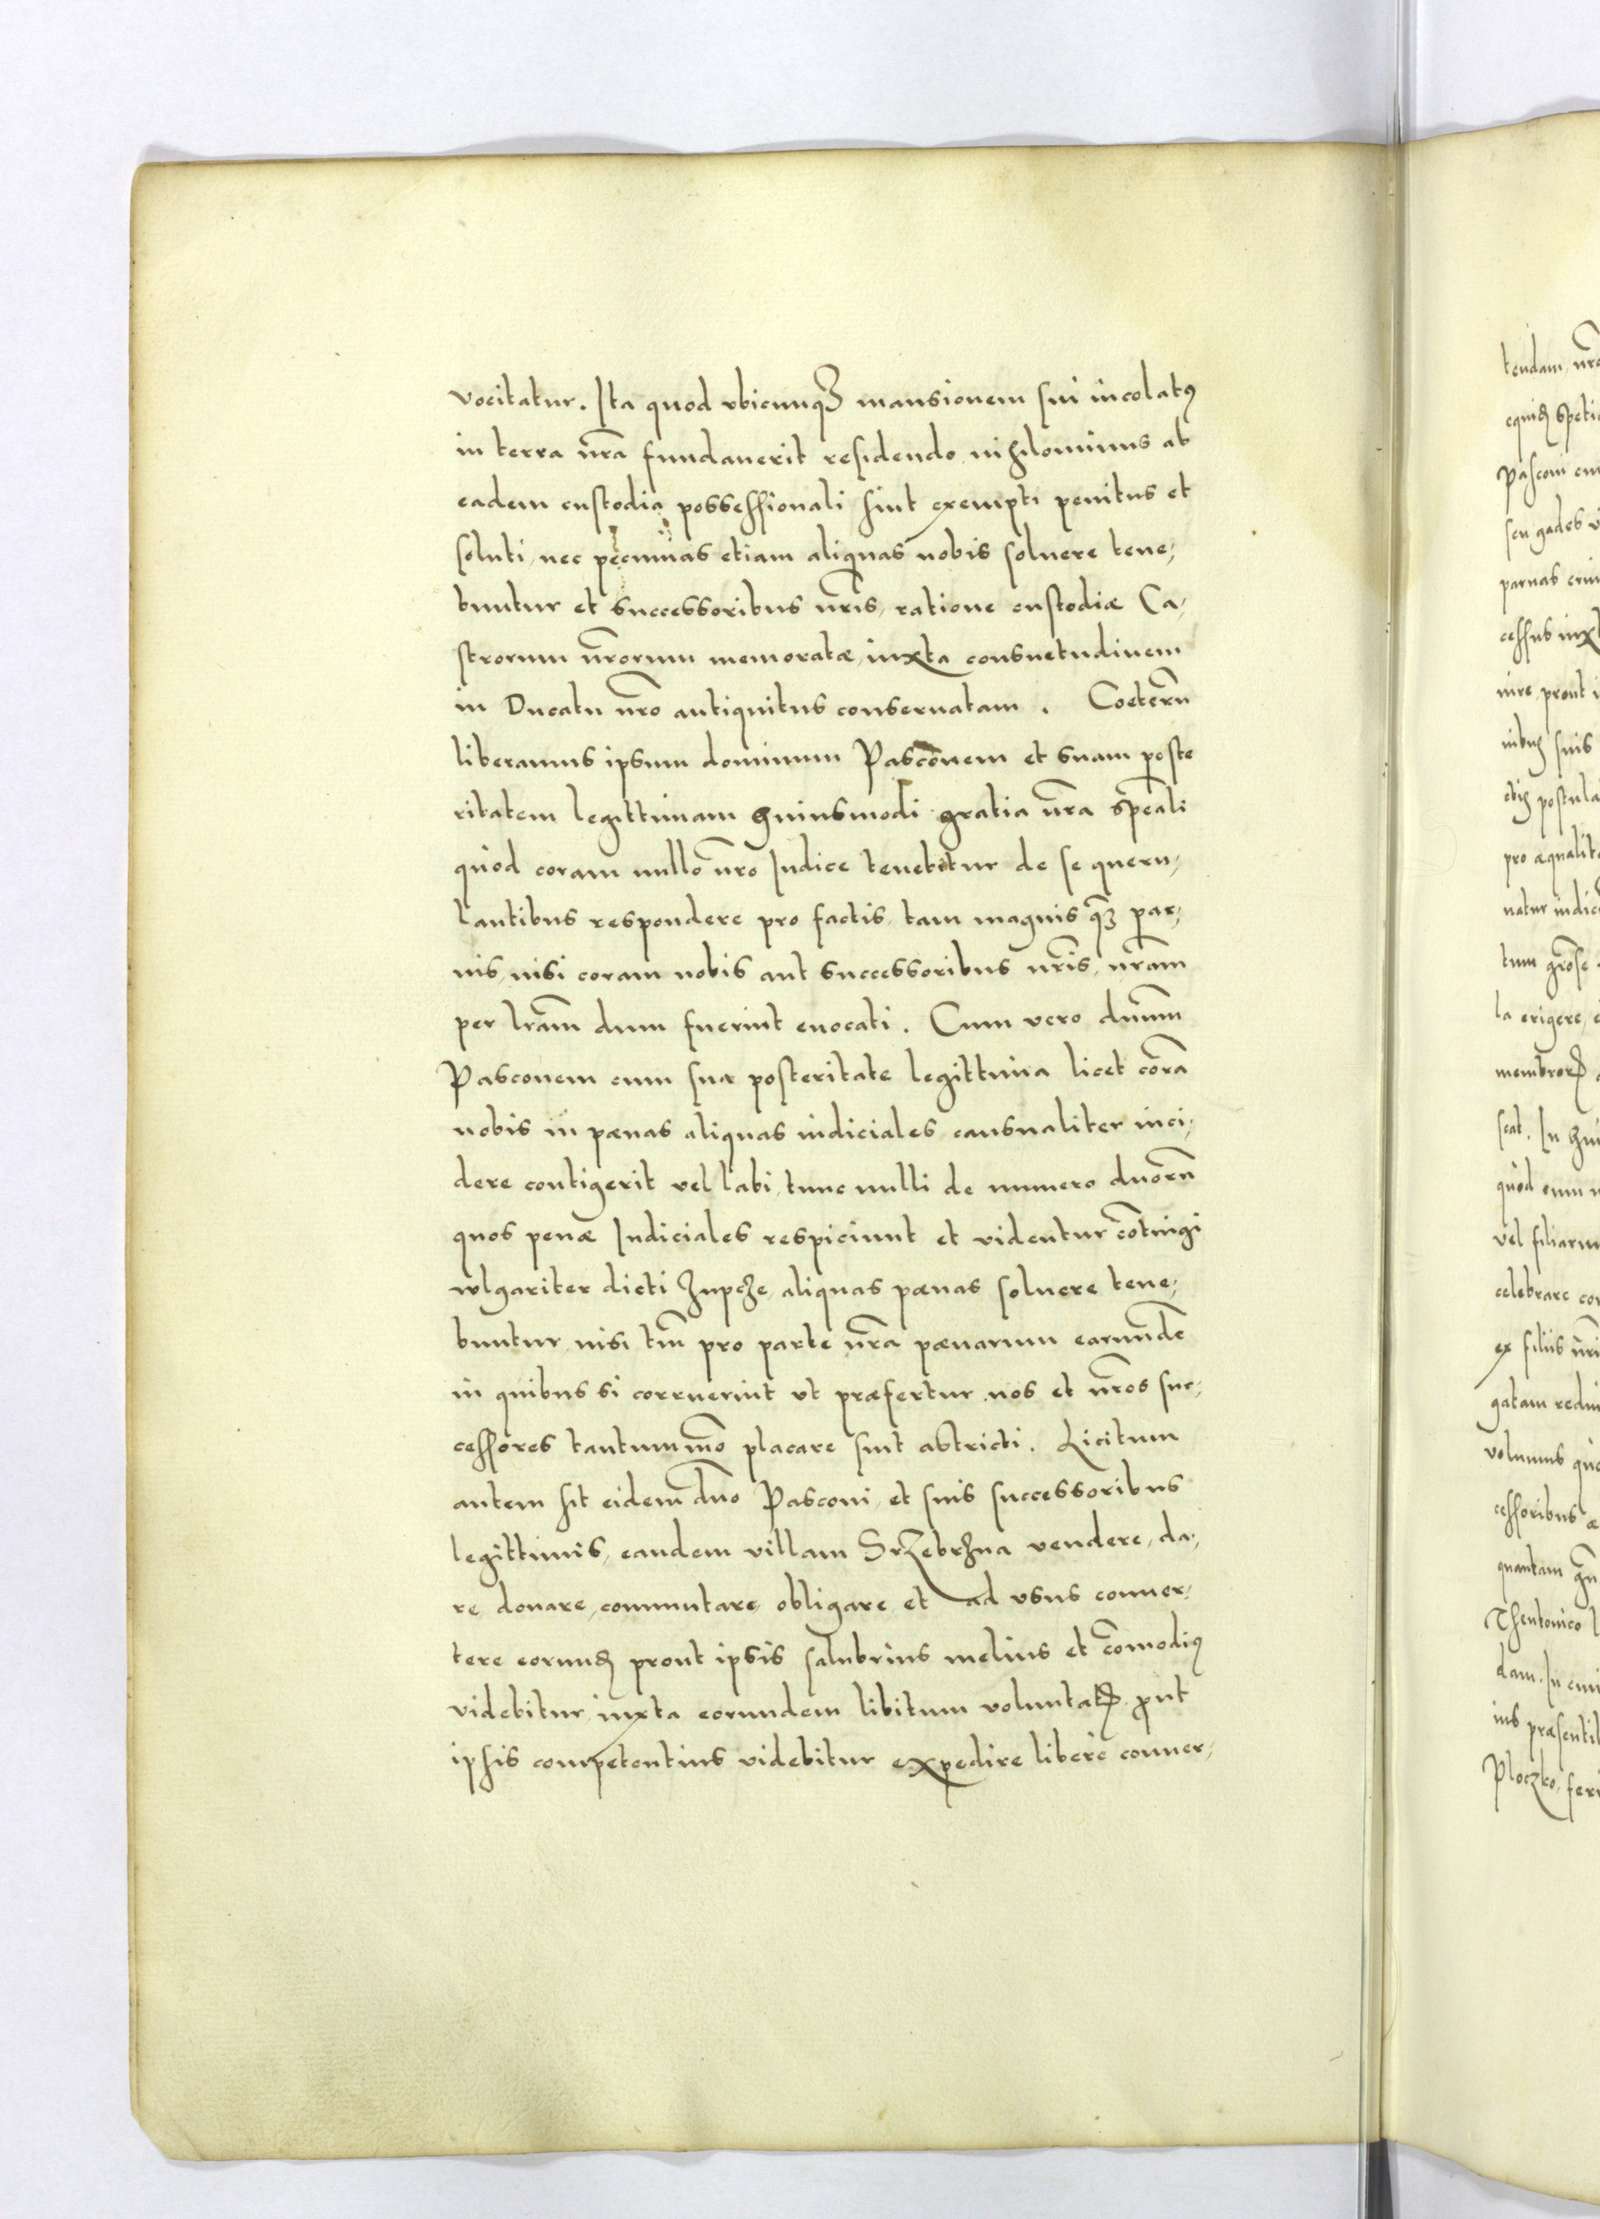 vocitatur. Ita quod vbicunqꝫ mansionem sui incolatꝰ
in terra nr̄a fundauerit residendo nihilominus ab
eadem custodia possessionali sint exempti penitus et
soluti, nec pecunias etiam aliquas nobis soluere tene,
buntur et successoribus nr̄is, ratione custodiæ Ca,
strorum nr̄orum memoratæ, iuxta consuetudinem
in Ducatu nr̄o antiquitus conseruatam. Coeterū
liberamus ipsum dominum Pasconem et suam poste
ritatem legittimam huiusmodi gratia nr̄a spēali
quod coram nullo nr̄o Iudice tenebitur de se queru,
lantibus respondere pro factis, tam magnis qꝫ par,
uis, nisi coram nobis aut successoribus nr̄is, nr̄am
per lr̄am dum fuerint euocati. Cum vero dn̄um
Pasconem cum sua posteritate legittima licet corā
nobis in pænas aliquas iudiciales, causualiter inci,
dere contigerit vel labi, tunc nulli de numero duorū
quos penæ Iudiciales respiciunt et videntur cōtingi
wlgariter dicti Zupcze, aliquas pænas soluere tene,
buntur, nisi tm̄ pro parte nr̄a pænarum earundē
in quibus si corruerint vt præfertur, nos et nr̄os suc,
cessores tantummō placare sint abtricti. Licitum
autem sit eidem dn̄o Pasconi, et suis successoribus
legittimis, eandem villam Srzebrzna vendere, da,
re donare, commutare obligare et ad vsus conuer,
tere eorundꝫ prout ipsis salubrius melius et cōmodiꝰ
videbitur, iuxta eorundem libitum voluntatꝫ, ꝓut
ipsis competentius videbitur expedire libere conuer,
tendam
Pascom
seu gades
iure, prout
suis
postula
la erigere,
scat. In
quod cum
vel filiarum
celebrare
ex filiis
gatam
volumus
cessoribus
quantam
Thentonico
dam. In
præsenti
Ploczko,